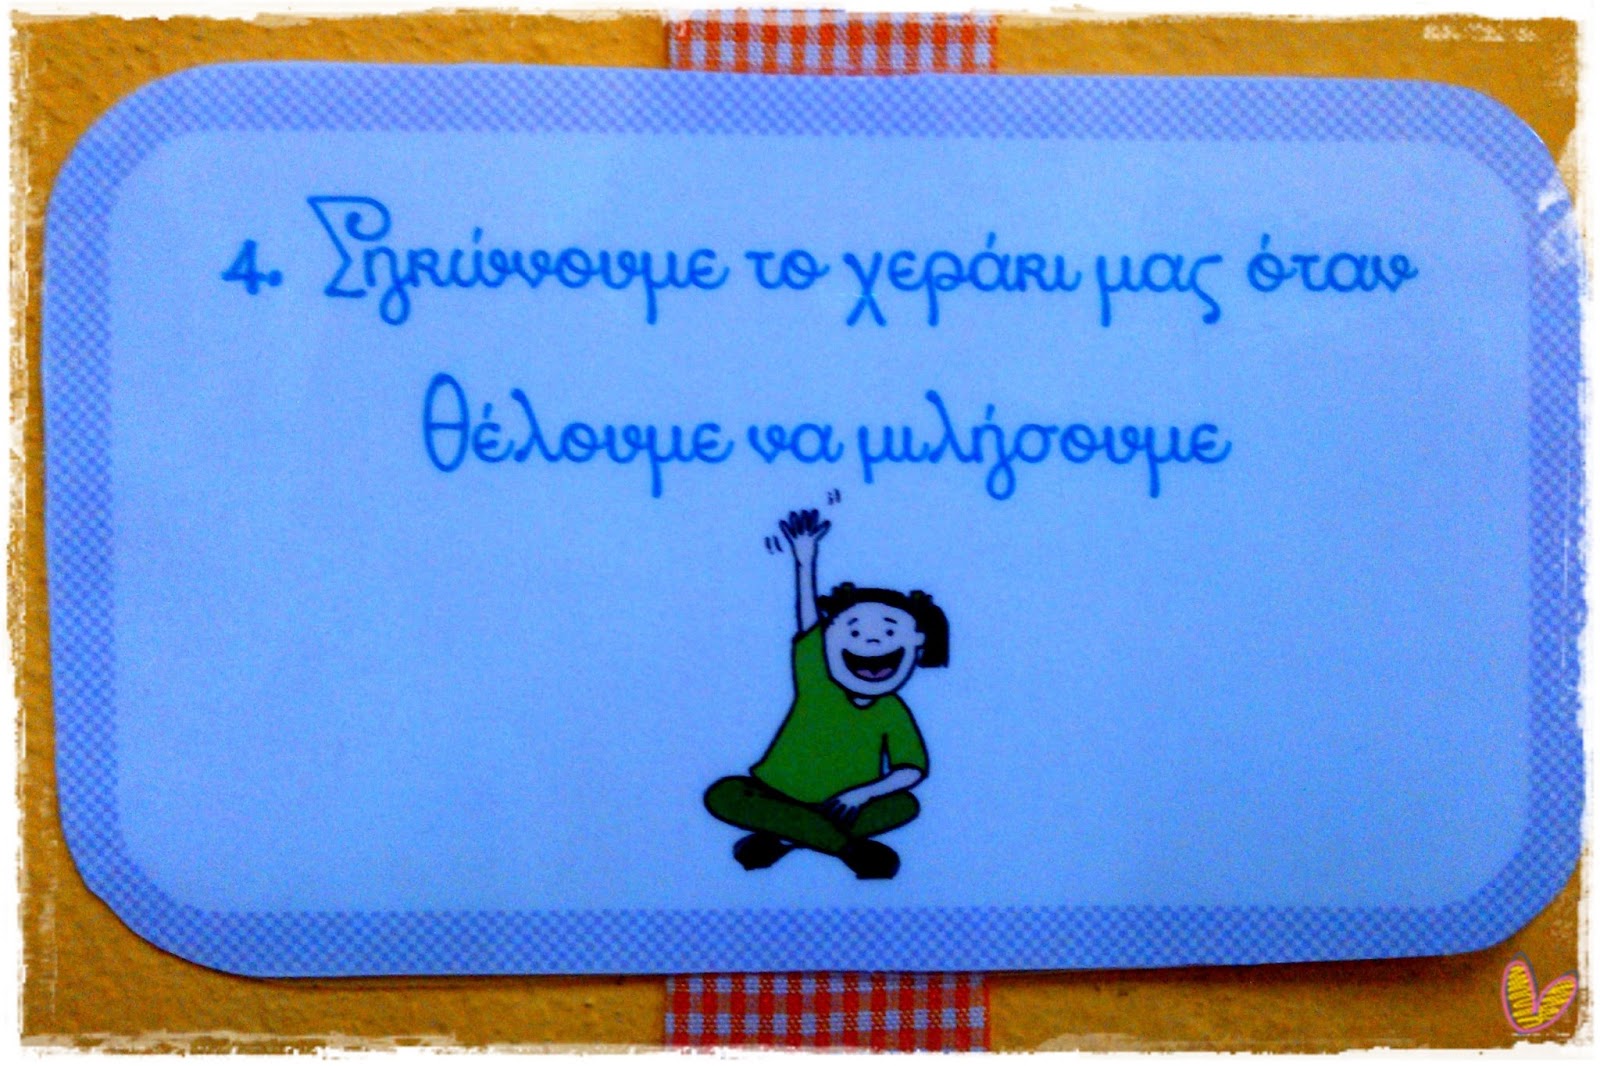 4. Σηκώνουμε το χεράκι μας όταν
θέλουμε να μιλήσουμε